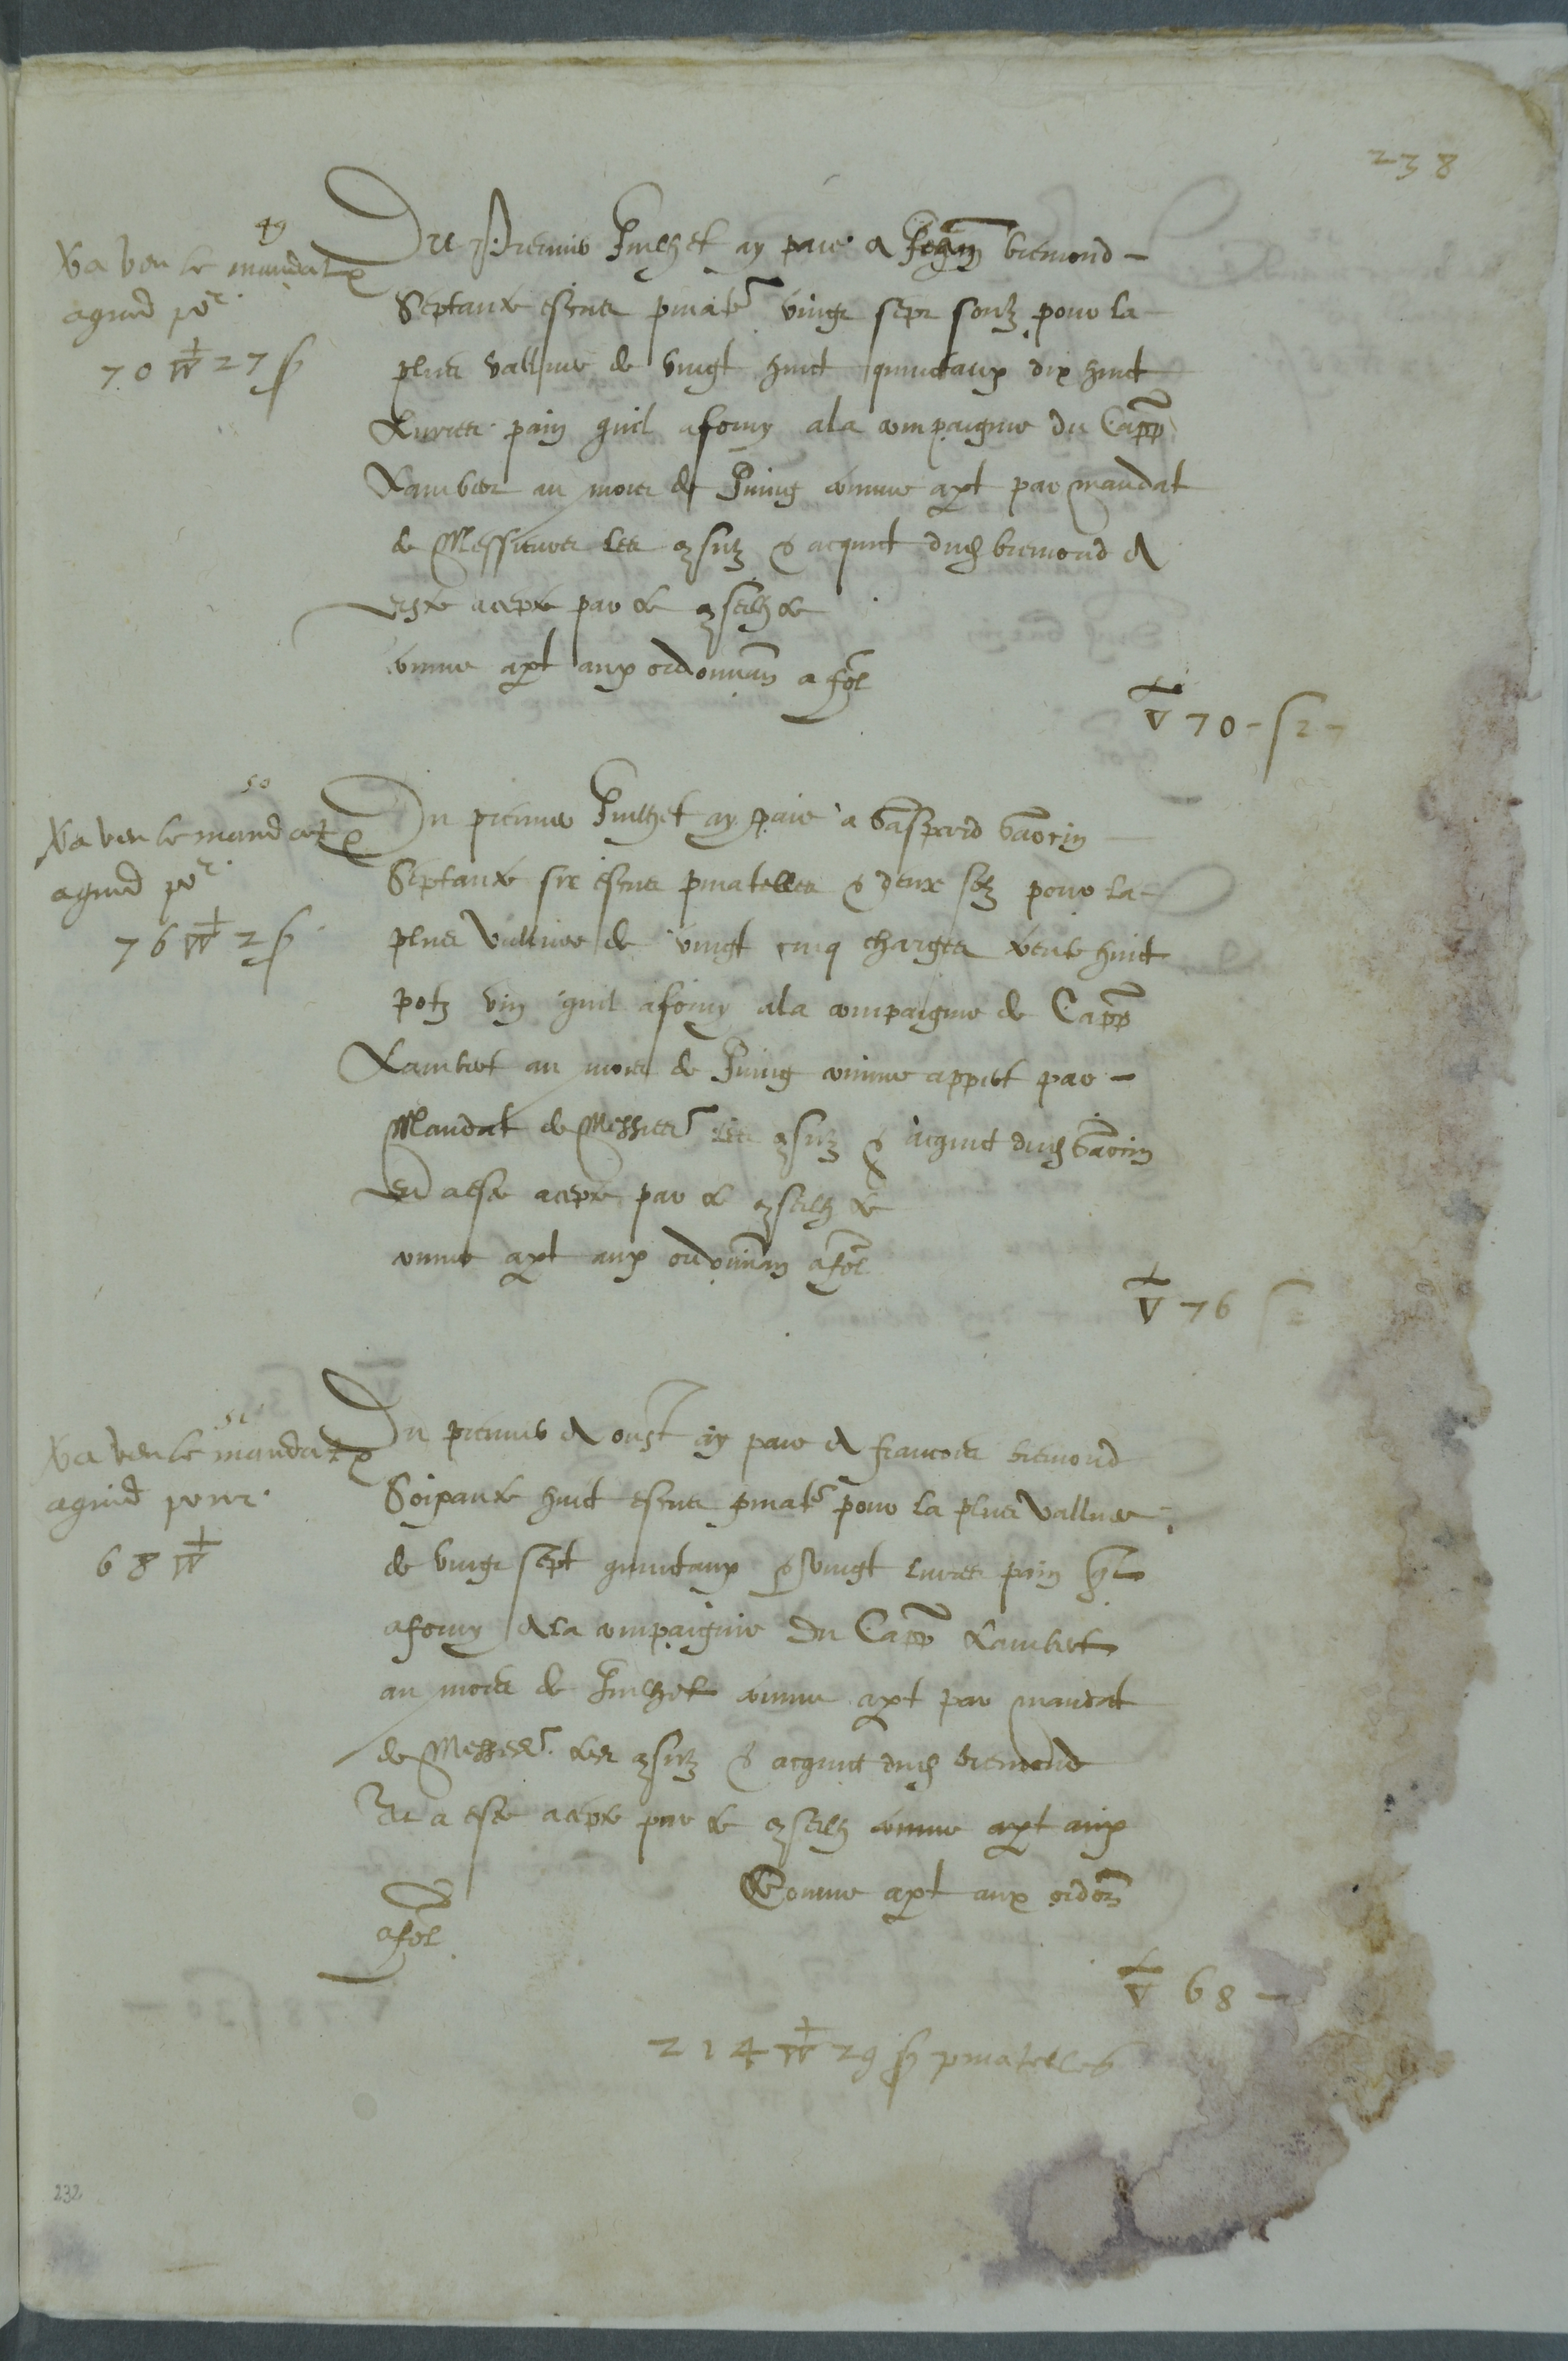 238
49
Xa veu le mandat &
aquid po^r.
70 V 27 s
Du Premier Juilhet ay paie a Jehan bremond -
Septante escus pinatē vingt sept soulz pour la
plus vallue de vingt huict quinctaux dix huict
Livres pain quil a forny a la compaignie du Capp
Lambert au mois de Juing comme apt par mandat
de Messieurs les consulz & acquict dud bremond a
este acepte par le conseilh &
comme apt aux ordonnan a fol
V 70 - s 27
50
Xa veu le mandat &
aquid po^r.
76 V 2 s
Du premier Juilhet ay paie a Gaspard Gaorin
Septante six escus pinatelles & deux solz pour la
plus vallue de vingt cinq charges trente huict
potz vin quil a forny a la compaignie de Capp
Lambert au mois de Juing comme appert par -
Mandat de Messieurs les consulz & acquict dud Gaorin
et a este acepte par le conseilh &
comme apt aux ordonnan a fol
V 76 s 2
51
Xa veu le mandat &
aquid pour.
68 V
Du premier d aoust ay paie a francois bremond
Soixante huict escus pinatē pour la plus vallue
de vingt sept quinctaux & vingt livres pain quil
a forny a la compaignie du Capp Lambert
au mois de Juilhet comme apt par mandat
de Messieurs les consulz & acquict dud bremond
Et a este acepte par le conseilh comme apt aux
Comme apt aux ordon
a fol
V 68 -
214 V 29 s pinatelles
232